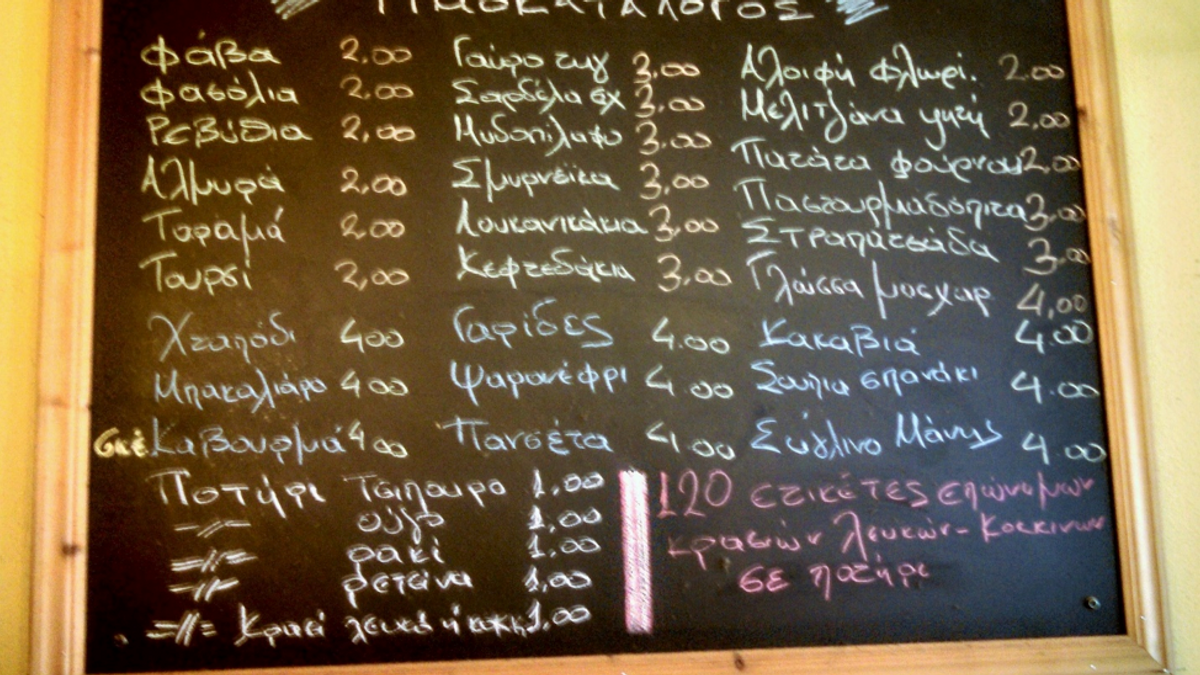 ΠΙΑΤΟΚΑΤΑΛΟΓΟΣ
Φάβα 2.00
Φασόλια 2.00
Ρεβύθια 2,00
Αλμυρά 2,00
Ταραμά 2,00
Τουρσί 2,00
Χταπόδι 400
Μπακαλιάρο 400
Καβουρμά 400
Γαύρο τηγ 3,00
Σαρδέλα σχ 3,00
Μυδοπίλαφο 3,00
Σμυρνέικα 3,00
Λουκανικάκια 3,00
Κεφτεδάκια 3,00
Γαρίδες 4.00
Ψαρονέφρι 4.00
Πανσέτα 4.00
Αλοιφή Φλωρι. 2.00
Μελιτζάνα ψητή 2,00
Πατάτα φούρνου 2,00
Παστουρμαδόπιτα 3,00
Στραπατσάδα 3,00
Γλώσσα μοσχαρ 4,00
Κακαβιά 4.00
Σουπια σπανάκι 4.00
Σύγλινο Μάνης 4.00
Ποτήρι Τσίπουρο 1,00
-//- ούζο 1,00
-//- ρακί 1.00
-//- ρετσίνα 1,00
-//- Κρασί λευκό ή κοκκ 1.00
120 ετικέτες επώνυμων
κρασιών λευκών - κοκκινων
σε ποτήρι